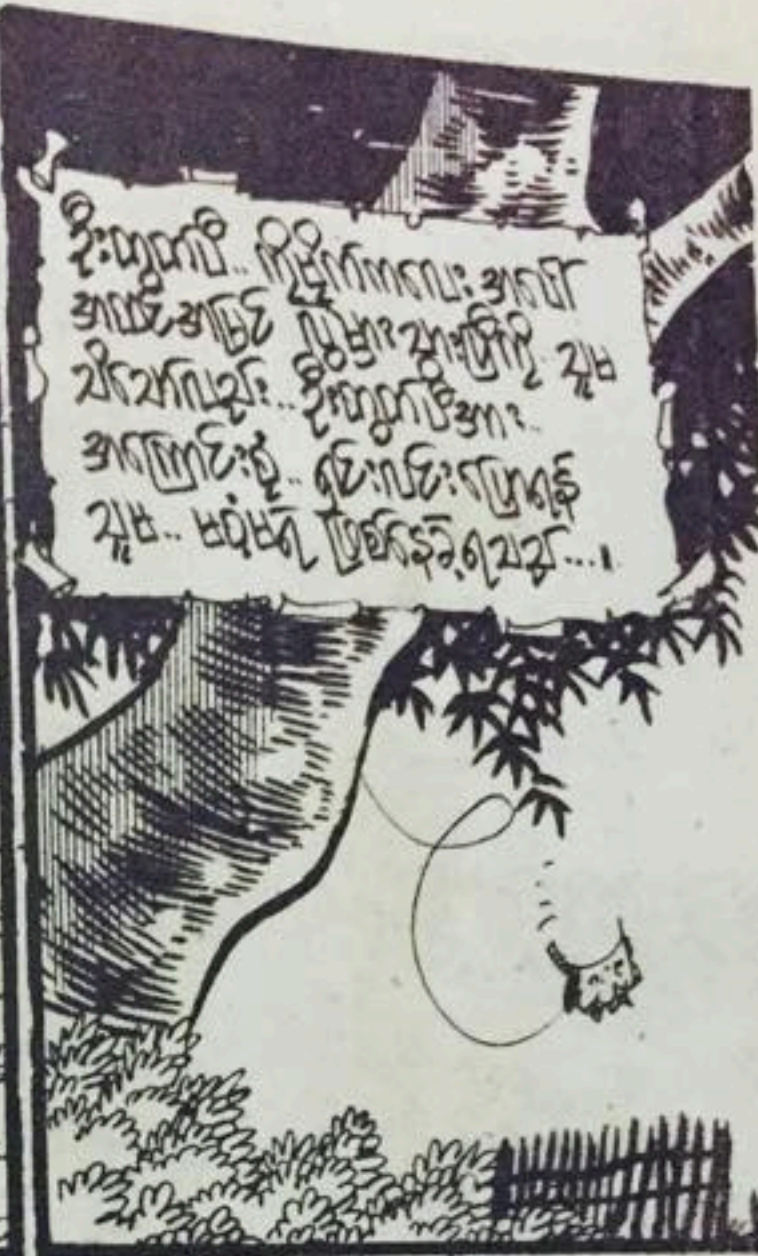 ဦးထွတ်ပီ.. ကိုမိုက်ကလေး အပေါ်
အထင်အမြင် လွဲမှားသွားပြီကို သူမ
သိသော်လည်း.. ဦးထွတ်ပီအား..
အကြောင်းစုံ.. ရှင်းလင်းပြောရန်
သူမ.. မဝံ့မရဲ ဖြစ်နေခဲ့ရသည်...။